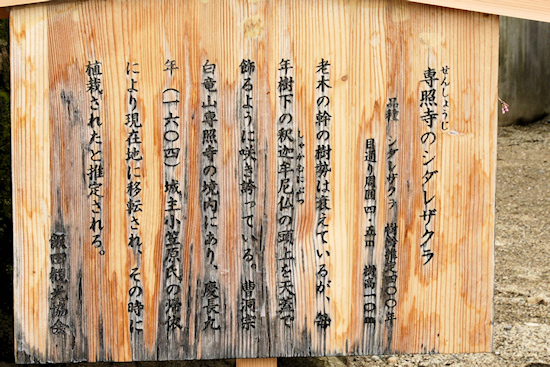 せんしょうじ
専照寺のシダレザクラ
品種 シダレザクラ 樹齢推定四〇〇年
目通り周囲 四・五m 樹高 一〇m
老木の幹の樹勢は衰えているが、毎
年樹下の釈迦牟尼仏の頭上を天蓋で
しゃかむにぶつ
飾るように咲き誇っている。曹洞宗
白竜山専照寺の境内にあり、慶長九
年(一六〇四)城主小笠原氏の帰依
により現在地に移転され、その時に
植栽されたと推定される。
飯田観光協会